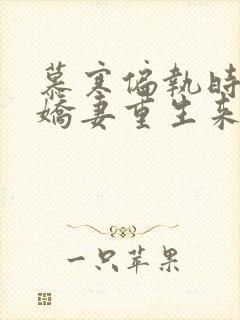 慕寒偏執時
嬌妻重生來
一只苹果